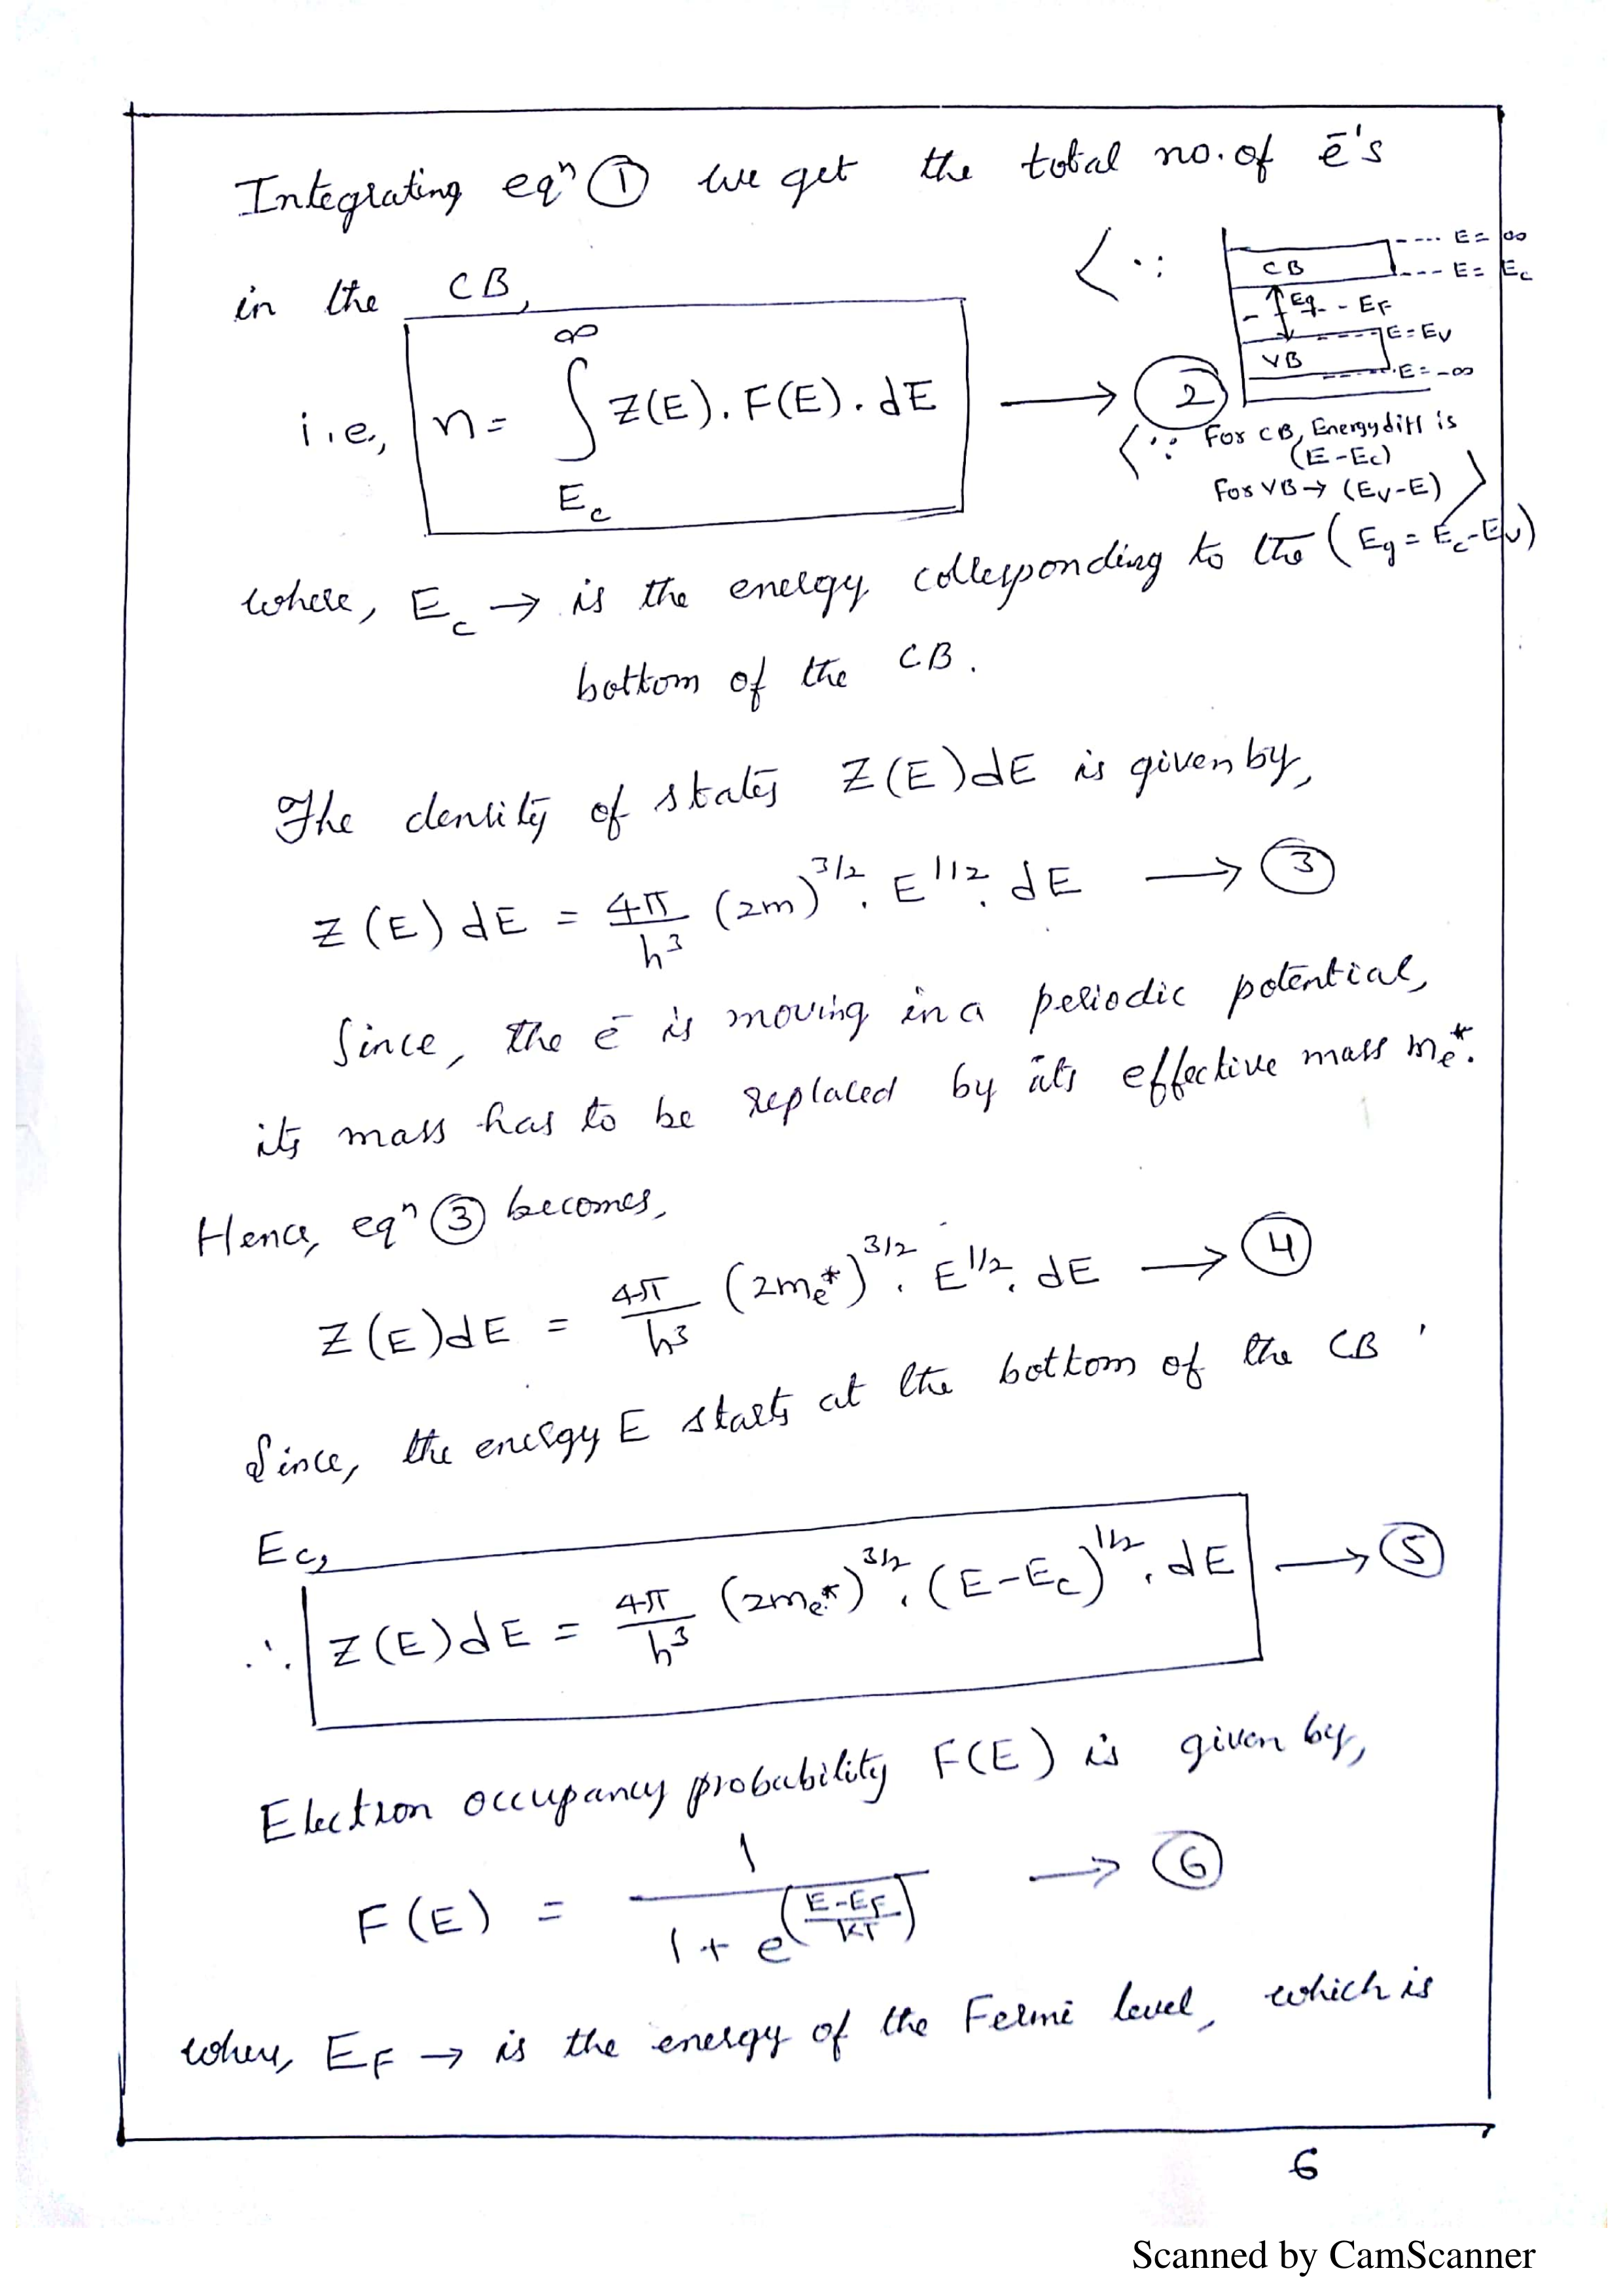 Integrating eqⁿ ① we get the total no. of ē's
in the CB,
⟨∵ CB ---- E = ∞
---- E = Ec
Eg - - EF
E = Ev
VB
E = -∞
i.e., n = ∫_{Ec}^{∞} Z(E) . F(E) . dE → ②
⟨∵ For CB, Energy diff is
(E - Ec)
For VB → (Ev - E)⟩
where, Ec → is the energy corresponding to the (Eg = Ec - Ev)
bottom of the CB.
The density of states Z(E)dE is given by,
Z(E) dE = 4π/h³ (2m)^{3/2} . E^{1/2} . dE → ③
Since, the ē is moving in a periodic potential,
its mass has to be replaced by its effective mass me*.
Hence, eqⁿ ③ becomes,
Z(E)dE = 4π/h³ (2me*)^{3/2} . E^{1/2} . dE → ④
Since, the energy E starts at the bottom of the CB
Ec,
∴ Z(E)dE = 4π/h³ (2me*)^{3/2} . (E - Ec)^{1/2} . dE → ⑤
Electron occupancy probability F(E) is given by,
F(E) = 1 / (1 + e^{((E - EF)/kT)}) → ⑥
where, EF → is the energy of the Fermi level, which is
6
Scanned by CamScanner